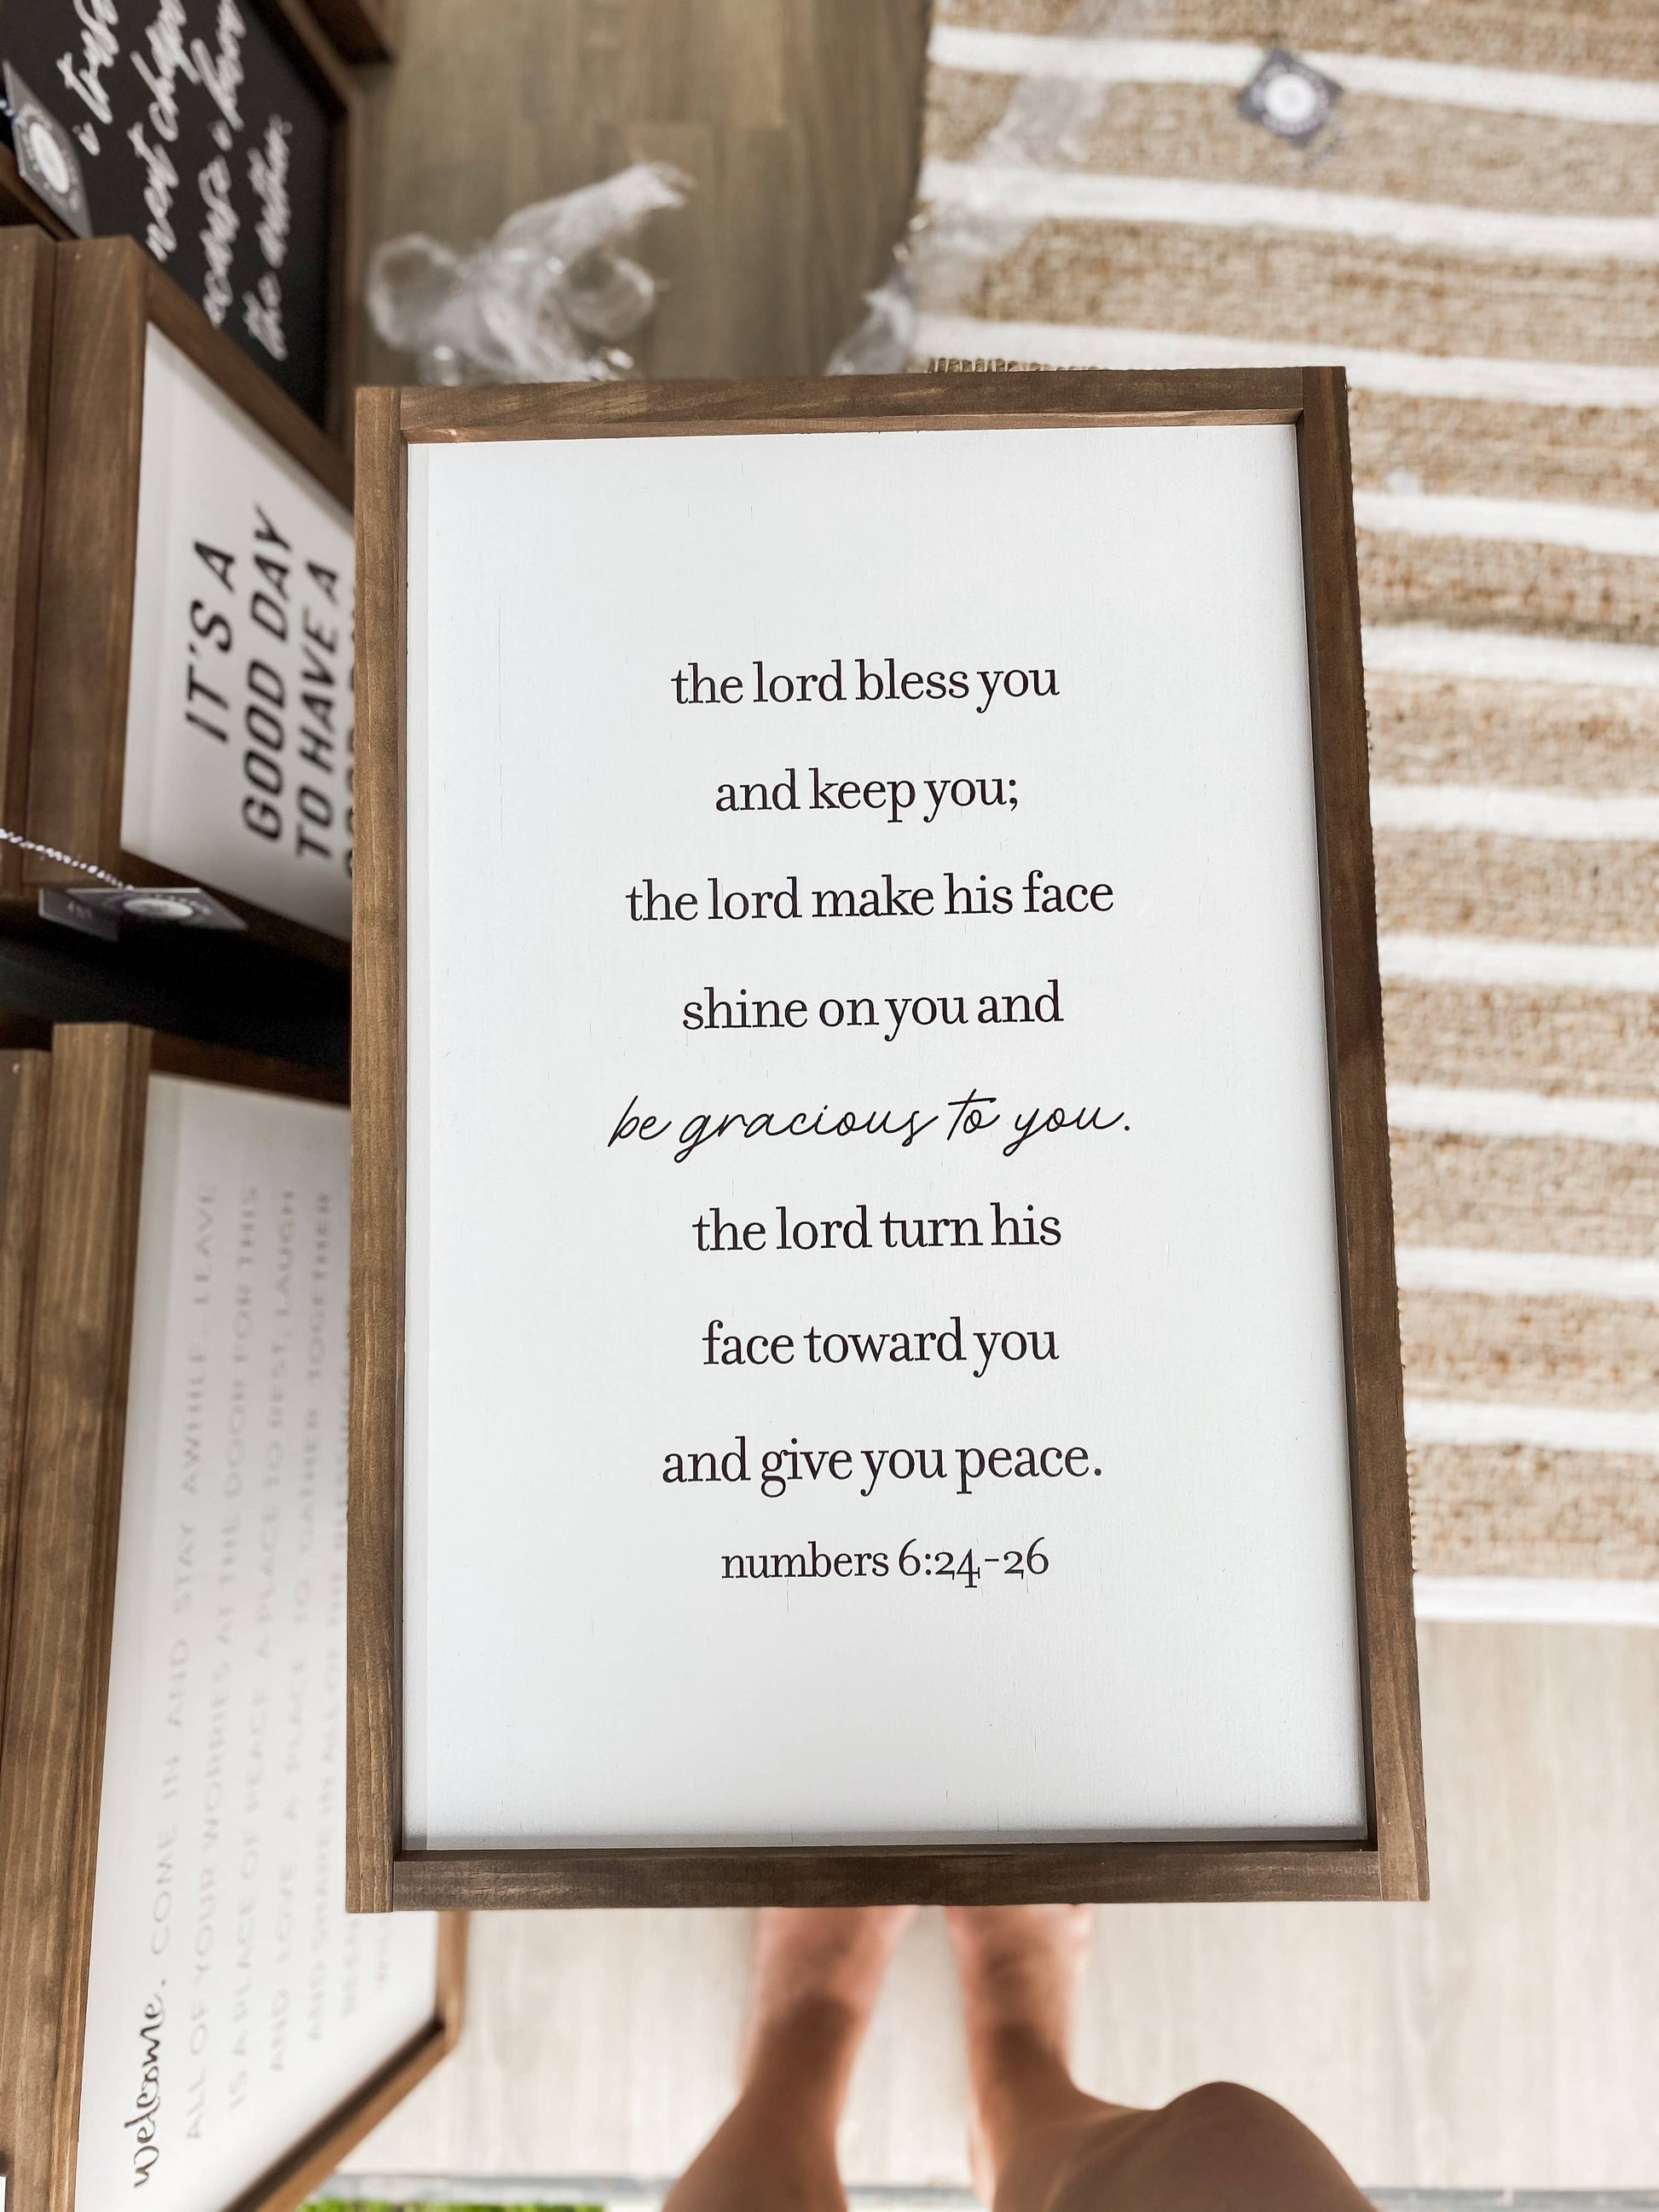 the lord bless you
and keep you;
the lord make his face
shine on you and
be gracious to you.
the lord turn his
face toward you
and give you peace.
numbers 6:24-26
IT'S A
GOOD DAY
TO HAVE A
welcome. COME IN AND STAY AWHILE. LEAVE
ALL OF YOUR WORRIES AT THE DOOR FOR THIS
IS A PLACE OF PEACE, A PLACE TO REST, LAUGH
AND LOVE. A PLACE TO GATHER TOGETHER
AND SHARE IN ALL OF
i
next
the other